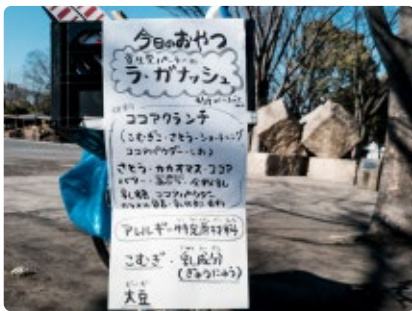 今日のおやつ
ラ・ガナッシュ
ココアクランチ
(こむぎこ・さとう・ショートニング
ココアパウダー・しお)
さとう・カカオマス・ココア
バター・全粉乳
乳糖 ココアパウダー
アレルギー特定原材料
こむぎ・乳成分
(ぎゅうにゅう)
だいず
大豆